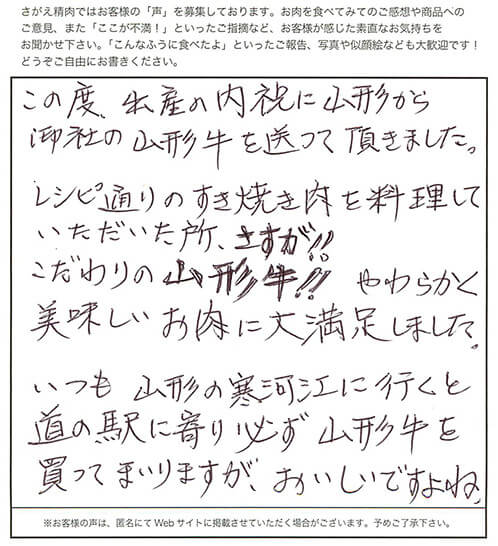 さがえ精肉ではお客様の「声」を募集しております。お肉を食べてみてのご感想や商品への
ご意見、また「ここが不満！」といったご指摘など、お客様が感じた素直なお気持ちを
お聞かせ下さい。「こんなふうに食べたよ」といったご報告、写真や似顔絵なども大歓迎です！
どうぞご自由にお書きください。
この度、出産の内祝に山形から
御社の山形牛を送って頂きました。
レシピ通りのすき焼き肉を料理して
いただいた所、さすが!!
こだわりの山形牛!! やわらかく
美味しいお肉に大満足しました。
いつも山形の寒河江に行くと
道の駅に寄り必ず山形牛を
買ってまいりますが、おいしいですよね。
※お客様の声は、匿名にてWebサイトに掲載させていただく場合がございます。予めご了承下さい。